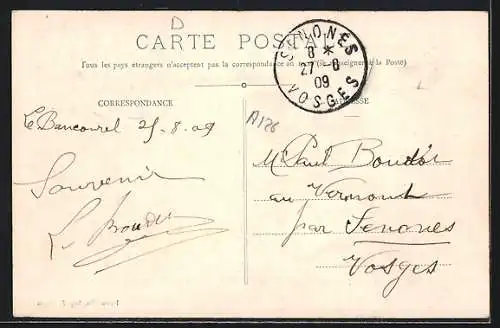 D
CARTE POSTALE
Tous les pays étrangers n'acceptent pas la correspondance en (Se renseigner à la Poste)
SENONES
8 *
27 - 8
09
VOSGES
CORRESPONDANCE
ADRESSE
A126
Le 25-8-09
Souvenir
Mr Paul Boudot
au Vermont
par Senones
Vosges